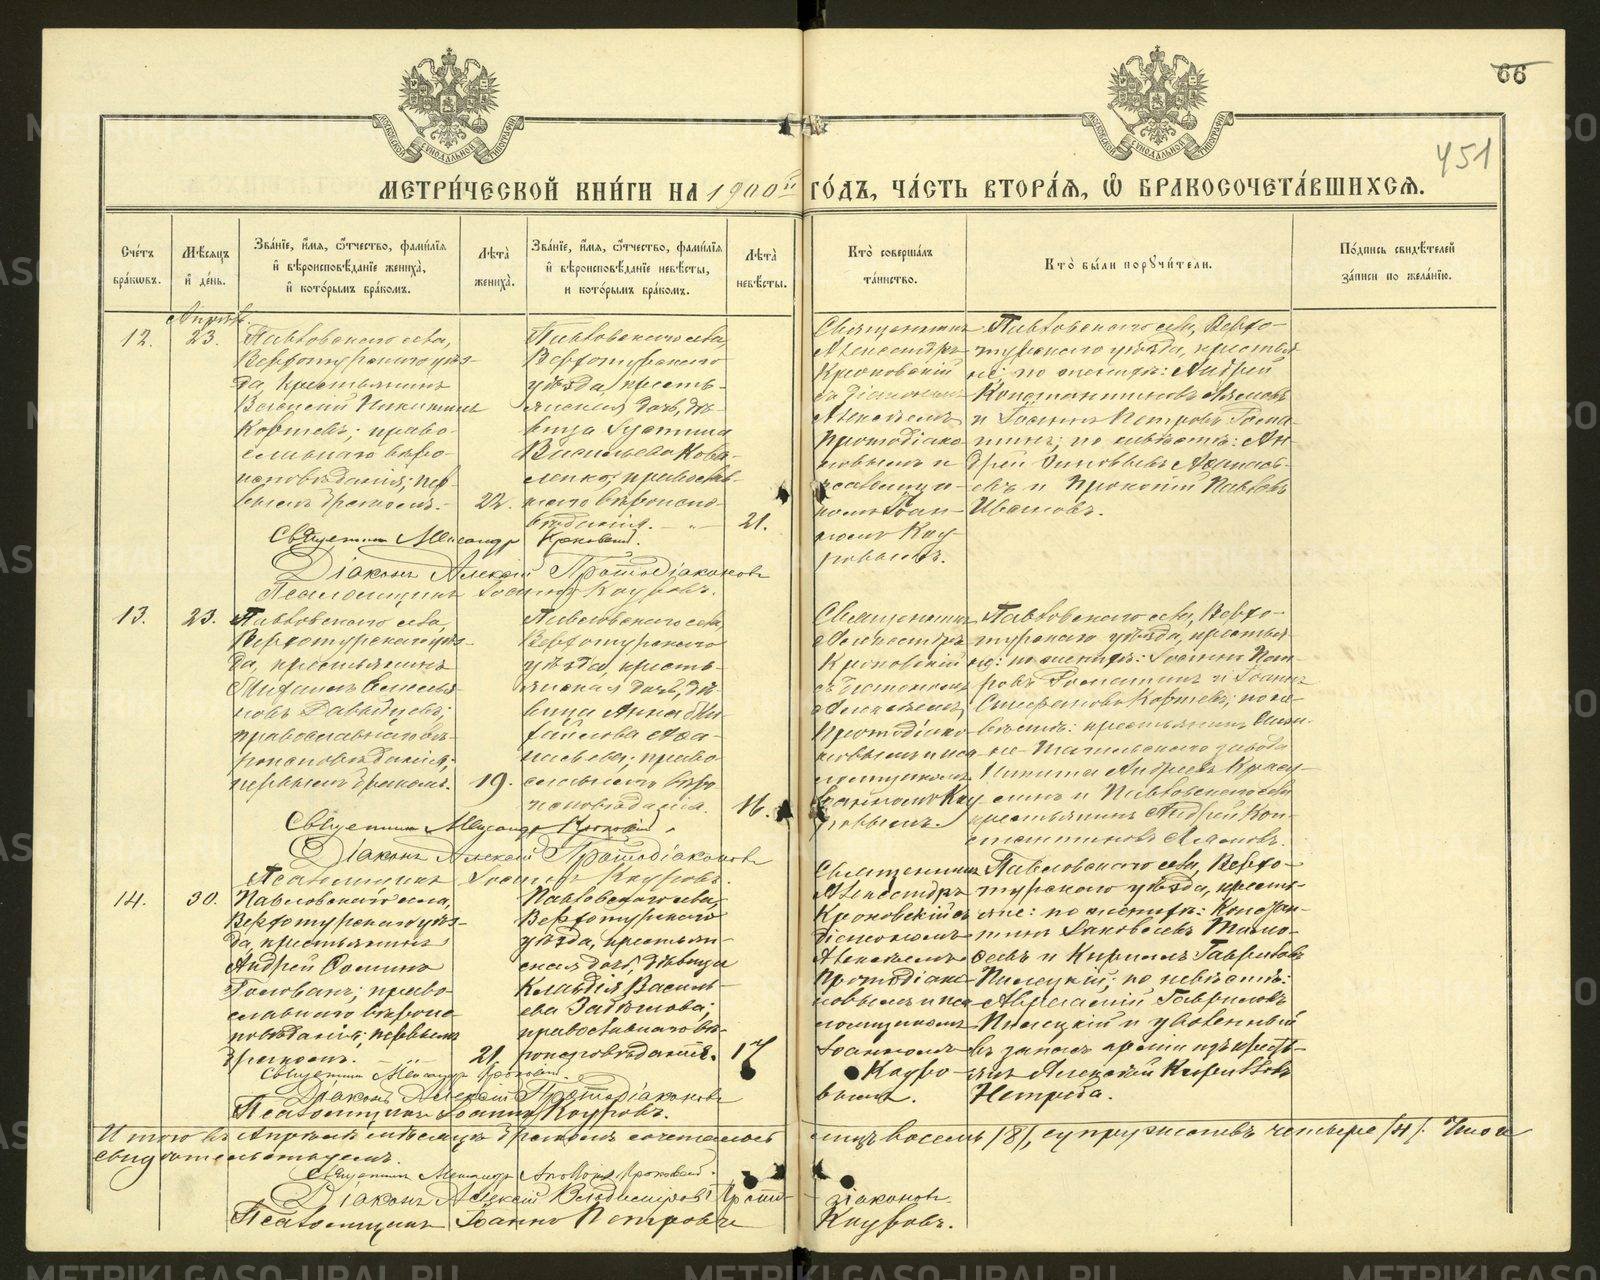 66
451
МОСКОВСКОЙ СѴНОДАЛЬНОЙ ТИПОГРАФІИ
МОСКОВСКОЙ СѴНОДАЛЬНОЙ ТИПОГРАФІИ
МЕТРИ́ЧЕСКОЙ КНИ́ГИ НА 1900й ГО́ДЪ, ЧА́СТЬ ВТОРА́Ѧ, Ѽ БРАКОСОЧЕТА́ВШИХСѦ.
Сче́тъ
бра́кѡвъ.
Мѣ́сѧцъ
и҆ де́нь.
Зва́нїе, и҆́мѧ, ѻ҆́тчество, фами́лїѧ
и҆ вѣроисповѣ́данїе жениха̀,
и҆ кото́рымъ бра́комъ.
Лѣ́та̀
жениха̀.
Зва́нїе, и҆́мѧ, ѻ҆́тчество, фами́лїѧ
и҆ вѣроисповѣ́данїе невѣ́сты,
и кото́рымъ бра́комъ.
Лѣ́та̀
невѣ́сты.
Кто̀ соверша́лъ
та́инство.
Кто̀ бы́ли порꙋчи́тели.
По́дпись свидѣ́телей
за́писи по жела́нїю.
Апрѣль.
12.
23.
Павловскаго села,
Верхотурскаго уѣз-
да, крестьянинъ
Василій Никитинъ
Коршевъ; право-
славнаго вѣро-
исповѣданія; пер-
вымъ бракомъ.
22.
Павловскаго села,
Верхотурскаго
уѣзда, кресть-
янская дочь, дѣ-
вица Іустина
Васильева Кова-
ленко; православ-
наго вѣроиспо-
вѣданія.
21.
Священникъ
Александръ
Крюковскій
съ діакономъ
Алексѣемъ
Протодіако-
новымъ и
псаломщи-
комъ Іоан-
номъ Кау-
ровымъ.
Павловскаго села, Верхо-
турскаго уѣзда, крестья-
не: по женихѣ: Андрей
Константиновъ
и Іоаннъ Петровъ
по невѣстѣ: Ан-
дрей Зиновьевъ
и Прокопій Павловъ
Ивановъ.
Священникъ Александръ Крюковскій.
Діаконъ Алексій Протодіаконовъ
Псаломщикъ Іоаннъ Кауровъ.
13.
23.
Павловскаго села,
Верхотурскаго уѣз-
да, крестьянинъ
Михаилъ
Давидовъ;
православнаго вѣ-
роисповѣданія;
первымъ бракомъ.
19.
Павловскаго села
Верхотурскаго
уѣзда, кресть-
янская дочь, дѣ-
вица Анна Ми-
хайлова Афа-
насьева; право-
славнаго вѣро-
исповѣданія.
16.
Священникъ
Александръ
Крюковскій
съ діакономъ
Алексѣемъ
Протодіако-
новымъ и пса-
ломщикомъ
Іоанномъ Кау-
ровымъ.
Павловскаго села, Верхо-
турскаго уѣзда, крестья-
не: по женихѣ: Іоаннъ Пет-
ровъ и Іоаннъ
Стефановъ Коршевъ; по не-
вѣстѣ: крестьянинъ
Тагильскаго завода
Никита Андреевъ
и Павловскаго села
крестьянинъ Андрей Кон-
стантиновъ
Священникъ Александръ Крюковскій.
Діаконъ Алексій Протодіаконовъ
Псаломщикъ Іоаннъ Кауровъ.
14.
30.
Павловскаго села,
Верхотурскаго уѣз-
да, крестьянинъ
Андрей Ѳоминъ
Голованъ; право-
славнаго вѣроис-
повѣданія; первымъ
бракомъ.
21.
Павловскаго села,
Верхотурскаго
уѣзда, крестьян-
ская дочь, дѣвица
Клавдія Василь-
ева
православнаго вѣ-
роисповѣданія.
17
Священникъ
Александръ
Крюковскій съ
діакономъ
Алексѣемъ
Протодіако-
новымъ и пса-
ломщикомъ
Іоанномъ
Кауро-
вымъ.
Павловскаго села, Верхо-
турскаго уѣзда, кресть-
яне: по женихѣ: Констан-
тинъ Яковлевъ
и Кириллъ Гавриловъ
Пилецкій; по невѣстѣ:
Аврамій Гавриловъ
Пилецкій и уволенный
въ запасъ арміи изъ кресть-
янъ Алексѣй Кирилловъ
Нетреба.
Священникъ Александръ Крюковскій.
Діаконъ Алексій Протодіаконовъ
Псаломщикъ Іоаннъ Кауровъ.
Итого въ Апрѣлѣ мѣсяцѣ бракомъ сочетались лицъ восемь /8/, супружествъ четыре /4/.
свидѣтельствуемъ
Священникъ Александръ Крюковскій.
Діаконъ Алексій Владиміровъ Протодіаконовъ.
Псаломщикъ Іоаннъ Петровъ Кауровъ.
METRIKI.GASO-URAL.RU